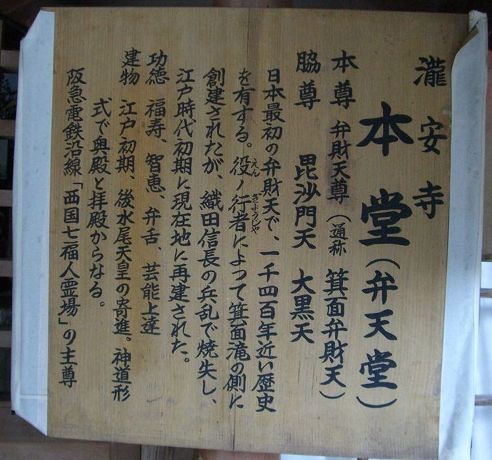 瀧安寺
本堂(弁天堂)
本尊 弁財天尊(通称 箕面弁財天)
脇尊 毘沙門天 大黒天
日本最初の弁財天で、一千四百年近い歴史
を有する。役ノ行者によって箕面滝の側に
えん
ぎょうじゃ
創建されたが、織田信長の兵乱で焼失し、
江戸時代初期に現在地に再建された。
功徳 福寿、智恵、弁舌、芸能上達
建物 江戸初期、後水尾天皇の寄進。神道形
式で奥殿と拝殿からなる。
阪急電鉄沿線「西国七福人霊場」の主尊